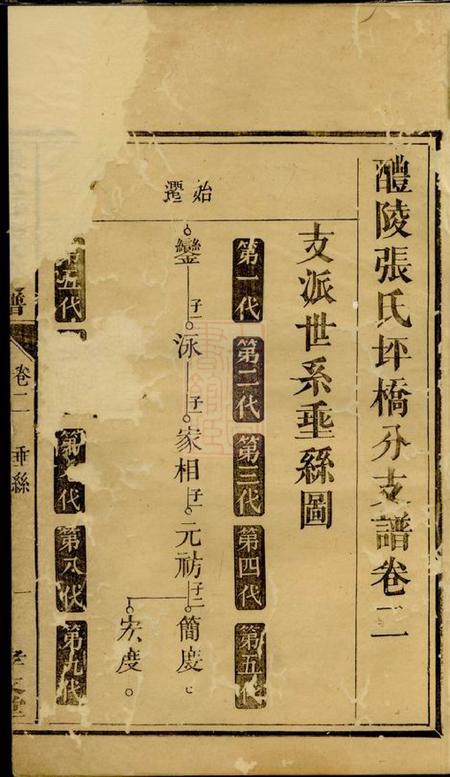 醴陵張氏坪橋分支譜卷二
支派世系垂絲圖
第一代 第二代 第三代 第四代 第五代
始遷
鑾 子一 泳 子一 家相 子一 元祊 子二 簡慶
宏度
第五代 第八代 第九代
譜 卷二 垂絲 一